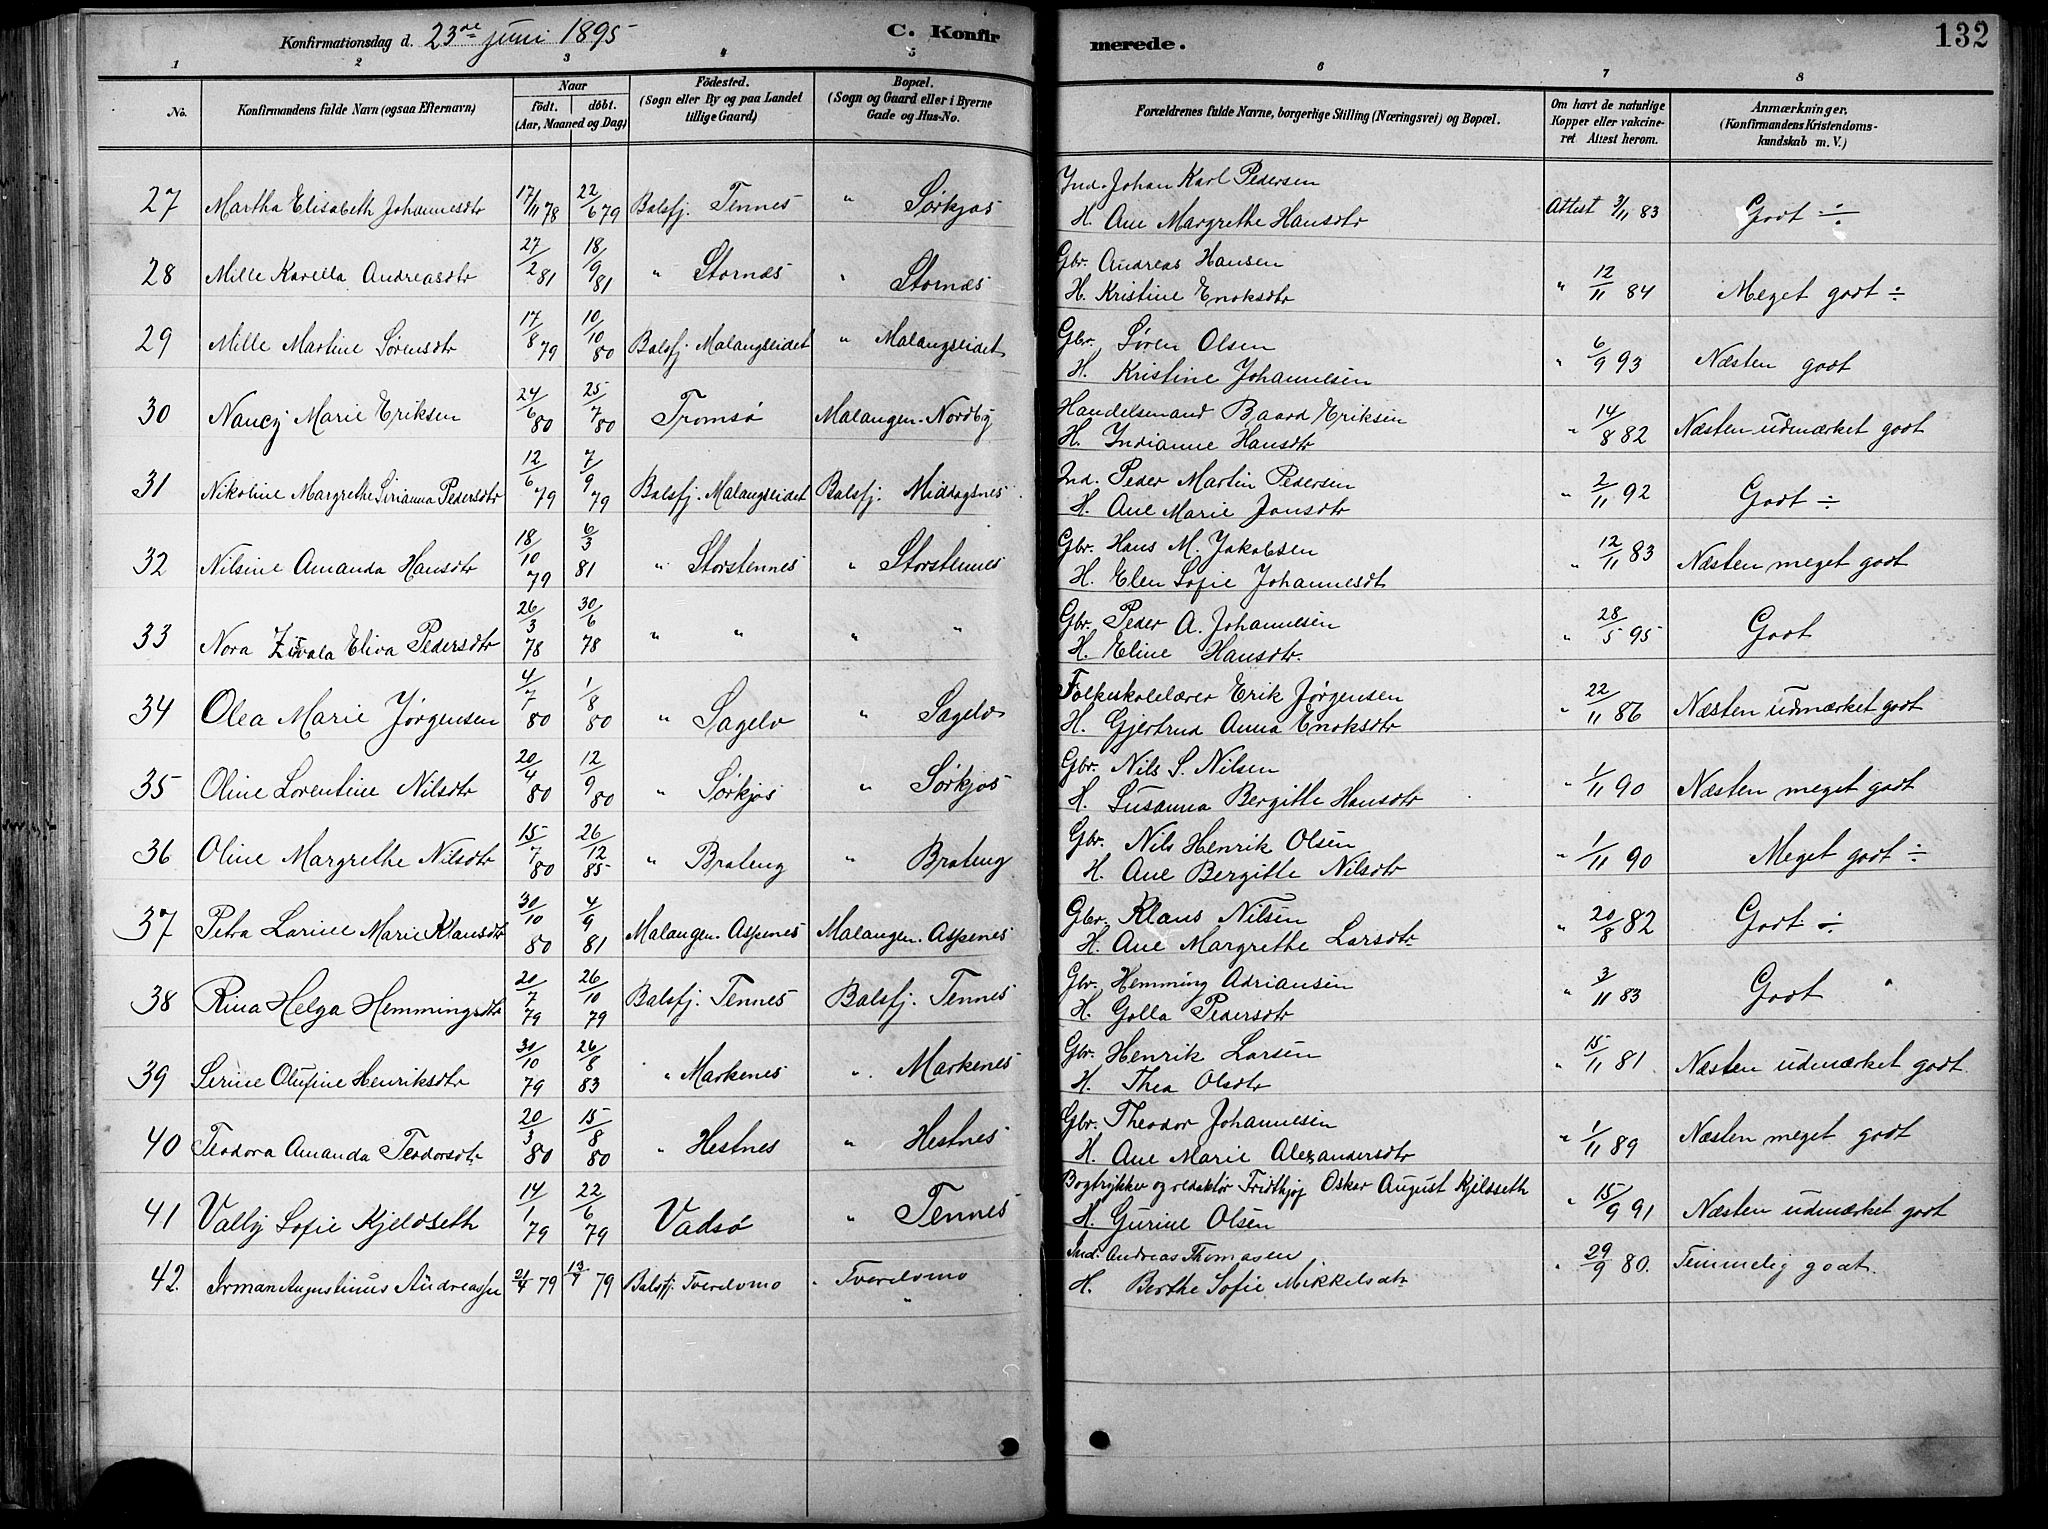 Konfirmationsdag d. 23de juni 1895 C. Konfirmerede. 132
1 2 3 4 5 6 7 8
No. Konfirmandens fulde Navn (ogsaa Efternavn) Naar födt. döbt. (Aar, Maaned og Dag) Födested. (Sogn eller By og paa Landet tillige Gaard) Bopæl. (Sogn og Gaard eller i Byerne Gade og Hus-No. Forældrenes fulde Navne, borgerlige Stilling (Næringsvei) og Bopæl. Om havt de naturlige Kopper eller vakcineret Attest herom. Anmærkninger. (Konfirmandens Kristendomskundskab m. V.)
27 Martha Elisabeth Johannesdtr 17/11 78 22/6 79 Balsfj. Tennes " Sørkjos Ind. Johan Karl Pedersen
H. Ane Margrethe Hansdtr Attest 3/11 83 Godt ÷
28 Mille Karella Andreasdtr 27/2 81 18/9 81 " Stornæs " Stornæs Gbr. Andreas Hansen
H. Kristine Enoksdtr " 12/11 84 Meget godt ÷
29 Mille Martine Sørensdtr 17/8 79 10/10 80 Balsfj. Malangseidet " Malangseidet Gbr. Søren Olsen
H. Kristine Johannesen " 6/9 93 Næsten godt
30 Nancy Marie Eriksen 24/6 80 25/7 80 Tromsø Malangen. Nordby Handelsmand Baard Eriksen
H. Indianne Hansdtr " 14/8 82 Næsten udmærket godt
31 Nikoline Margrethe Sirianna Pedersdtr 12/6 79 7/9 79 Balsfj. Malangseidet Balsfj. Middagsnes Ind. Peder Martin Pedersen
H. Ane Marie Jonsdtr " 2/11 92 Godt ÷
32 Nilsine Amanda Hansdtr 18/10 79 6/3 81 " Storstennes " Storstennes Gbr. Hans M. Jakobsen
H. Elen Sofie Johannesdt " 12/11 83 Næsten meget godt
33 Nora Eliva Pedersdtr 26/3 78 30/6 78 " " " " Gbr. Peder A. Johannesen
H. Eline Hansdtr. " 28/5 95 Godt
34 Olea Marie Jørgensen 4/7 80 1/8 80 " Sagelv " Sagelv Folkeskolelærer Erik Jørgensen
H. Gjertrud Anna Enoksdtr " 22/11 86 Næsten udmærket godt
35 Oline Lorentine Nilsdtr 20/4 80 12/9 80 " Sørkjos " Sørkjos Gbr. Nils S. Nilsen
H. Susanna Bergitte Hansdtr " 1/11 90 Næsten meget godt
36 Oline Margrethe Nilsdtr 15/7 80 26/12 85 " Brateng " Brateng Gbr. Nils Henrik Olsen
H. Ane Bergitte Nilsdtr " 1/11 90 Meget godt ÷
37 Petra Larine Marie Klausdtr 30/10 80 4/9 81 Malangen. Aspenes Malangen. Aspenes Gbr. Klaus Nilsen
H. Ane Margrethe Larsdtr " 20/8 82 Godt ÷
38 Rina Helga Hemmingsdtr 20/7 79 26/10 79 Balsfj. Tennes Balsfj. Tennes Gbr. Hemming Adriansen
H. Golla Pedersdtr " 3/11 83 Godt
39 Serine Olufine Henriksdtr 30/10 79 26/8 83 " Markenes " Markenes Gbr. Henrik Larsen
H. Thea Olsdtr " 15/11 81 Næsten udmærket godt.
40 Teodora Amanda Teodorsdtr 20/3 80 15/8 80 " Hestnes " Hestnes Gbr. Theodor Johannesen
H. Ane Marie Alexandersdtr " 1/11 89 Næsten meget godt
41 Vally Sofie Kjeldseth 14/1 79 22/6 79 Vadsø " Tennes Bogtrykker og redaktør Fridthjof Oskar August Kjeldseth
H. Gurine Olsen " 15/9 91 Næsten udmærket godt
42. Irman Augustinus Andreassen 21/4 79 13/7 79 Balsfj. Tverelvmo " Tverelvmo Ind. Andreas Thomasen
H. Berthe Sofie Mikkelsdtr " 29/9 80. Temmelig godt.